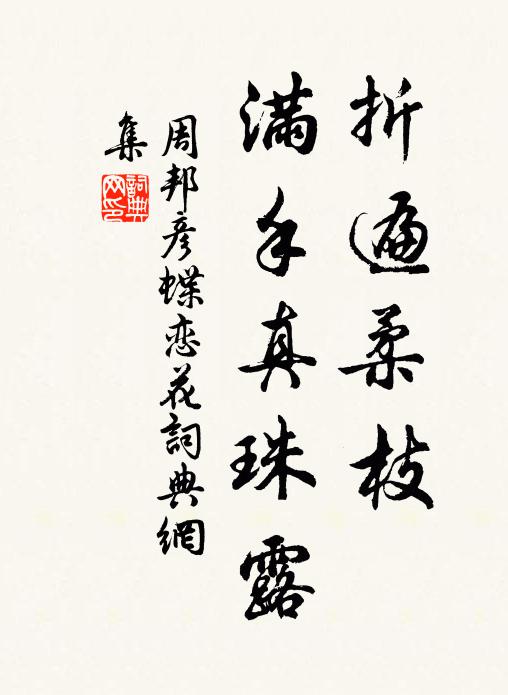 折遍柔枝
满手真珠露
周邦彦蝶恋花詞典網
集
詞典
网印